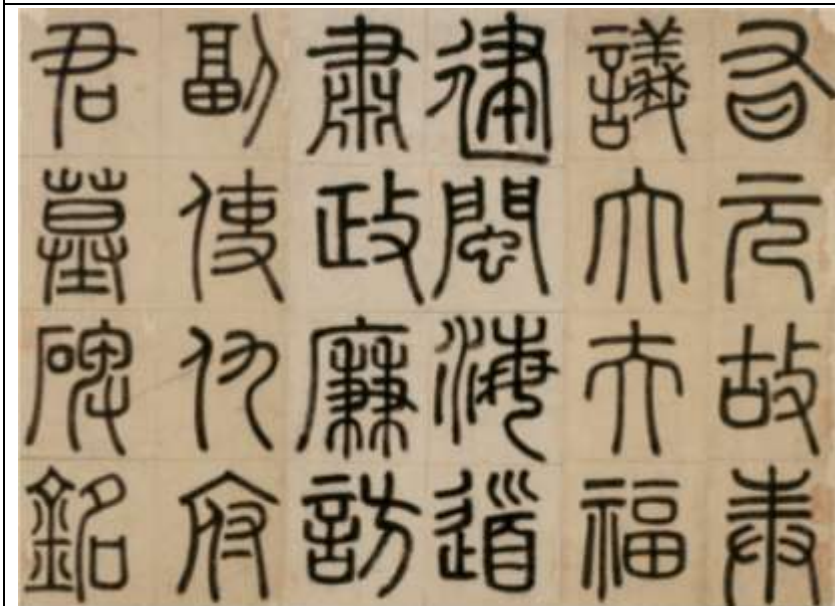 有元故奉
議大夫福
建閩海道
肅政廉訪
副使仇府
君墓碑銘